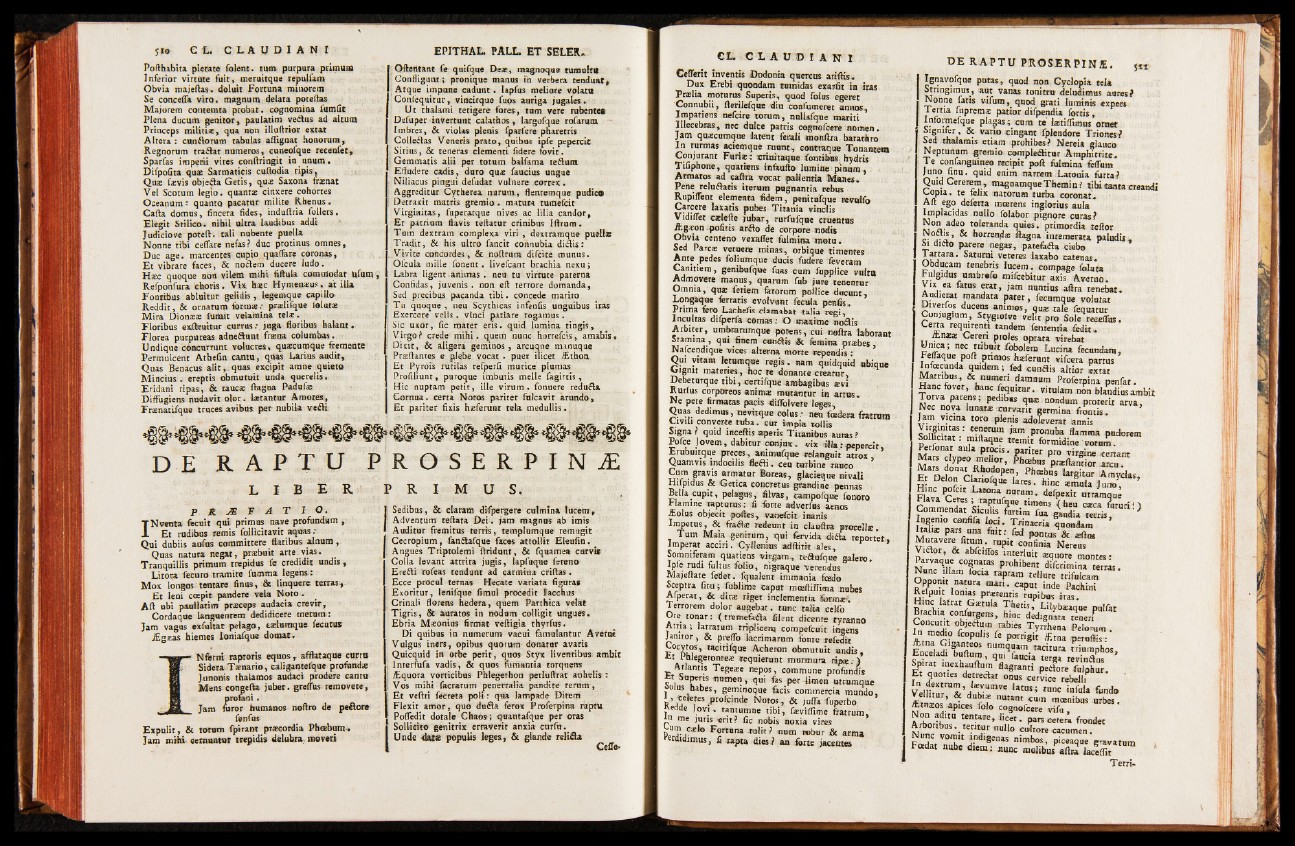 510 CL. CLAUDIANI
Posthabita pietate solent. tum purpura primum
Inferior virtute fuit, meruitque repulsam
Obvia majestas. doluit Fortuna minorem
Se concessa viro. magnum delata potestas
Maiorem contemta probat. cognomina sumsit
Plena ducum genitor, paulatim vectus ad altum
Princeps militiæ, qua non illustrior extat
Altera: cunctorum tabulas assignat honorum,
Regnorum tractat numeros, cuneosque recenset,
Sparsas imperii vires constringit in unum.
Disposita quæ Sarmaticis custodia ripis,
Quæ sævis objecta Getis, quæ Saxona frænat
Vel Scotum legio. quantæ cinxere cohortes
Oceanum: quanto pacatur milite Rhenus.
Casta domus, sincera fides, industria sollers.
Elegit Stilico. nihil ultra laudibus addi
Judiciove potest. tali nubente puella
Nonne tibi cessare nefas? duc protinus omnes,
Duc age. marcentes cupio quassare coronas,
Et vibrare faces, & noctem ducere ludo.
Hæc quoque non vilem mihi fistula commodat usum,
Responsura choris. Vix hæc Hymenæus. at illa
Fontibus abluitur gelidis, legemque capillo
Reddit, & ornatum formæ: prælisque solutæ
Mira Dionææ sumit velamina telæ.
Floribus exstruitur currus: juga floribus halant.
Florea purpureas adnectunt fræna columbas.
Undique concurrunt volucres, quæcumque frementem
Permulcent Athesin cantu, quas Larius audit,
Quas Benacus alit, quas excipit amne quieto
Mincius. ereptis obmutuit unda querelis.
Eridani ripas, & raucæ stagna Padusæ
Diffugiens nudavit olor. lætantur Amores,
Frænatisque truces avibus per nubila vecti
EPITHAL. PALL. ET SELER.
Ostentant se quisque Deæ, magnoque tumultu
Confligunt; pronique manus in verbera tendunt,
Atque impune cadunt. lapsus meliore volatu
Consequitur, vincitque suos auriga jugales.
Ut thalami tetigere fores, tum vere rubentes
Desuper invertunt calathos, largosque rosarum
Imbres, & violas plenis sparsere pharetris
Collectas Veneris prato, quibus ipse pepercit
Sirius, & teneras clementi sidere fovit.
Gemmatis alii per totum balsama tectum
Effudere cadis, duro quæ saucius ungue
Niliacus pingui desudat vulnere cortex.
Aggreditur Cytherea nurum, flentemque pudico
Detraxit matris gremio. matura tumescit
Virginitas, superatque nives ac lilia candor,
Et patrium flavis testatur crinibus Istrum.
Tum dextram complexa viri, dextramque puellæ
Tradit, & his ultro sancit connubia dictis:
Vivite concordes, & nostrum discite munus.
Oscula mille sonent. livescant brachia nexu;
Labra ligent animas. neu tu virtute paterna
Confidas, juvenis. non est terrore domanda,
Sed precibus pacanda tibi. concede marito
Tu quoque, neu Scythicas infensis unguibus iras
Exercere velis. vinci patiare rogamus.
Sic uxor, sic mater eris. quid lumina tingis,
Virgo? crede mihi. quem nunc horrescis, amabis.
Dixit, & aligera geminos, arcuque manuque
Præstantes e plebe vocat. puer ilicet Æthon
Et Pyrois rutilas respersi murice plumas
Prosiliunt, puroque imbutis melle sagittis,
Hic nuptam petit, ille virum. sonuere reducta
Cornua. certa Notos pariter sulcavit arundo,
Et pariter fixis hæserunt tela medullis.
DE RAPTU PROSERPINÆ
LIBER PRIMUS.
PRÆFATIO.
INventa secuit qui primus nave profundum,
Et rudibus remis sollicitavit aquas:
Qui dubiis ausus committere flatibus alnum,
Quas natura negat, præbuit arte vias.
Tranquillis primum trepidus se credidit undis,
Litora securo tramite summa legens:
Mox longos tentare sinus, & linquere terras,
Et leni cœpit pandere vela Noto.
Ast ubi paullatim præceps audacia crevit,
Cordaque languentem dedidicere metum:
Jam vagus exsultat pelago, cælumque secutus
Ægæas hiemes Ioniasque domat.
INferni raptoris equos, afflataque curru
Sidera Tænario, caligantesque profundæ
Junonis thalamos audaci prodere cantu
Mens congesta jubet. gressus removete,
profani,
Jam furor humanos nostro de pectore
sensus
Expulit, & totum spirant præcordia Phœbum.
Jam mihi cernuntur trepidis delubra moveri
Sedibus, & claram dispergere culmina lucem,
Adventum testata Dei. jam magnus ab imis
Auditur fremitus terris, templumque remugit
Cecropium, sanctasque faces attollit Eleusin.
Angues Triptolemi stridunt, & squamea curvis
Colla levant attrita jugis, lapsuque sereno
Erecti roseas tendunt ad carmina cristas.
Ecce procul ternas Hecate variata figuras
Exoritur, lenisque simul procedit Iacchus
Crinali florens hedera, quem Parthica velat
Tigris, & auratos in nodum colligit ungues.
Ebria Mæonius firmat vestigia thyrsus.
Di quibus in numerum vacui famulantur Averni
Vulgus iners, opibus quorum donatur avaris
Quicquid in orbe perit, quos Styx liventibus ambit
Intersusa vadis, & quos fumantia torquens
Æquora vorticibus Phlegethon perlustrat anhelis:
Vos mihi sacrarum penetralia pandite rerum,
Et vestri secreta poli: qua lampade Ditem
Flexit amor, quo ducta ferox Proserpina raptu
Possedit dotale Chaos; quantasque per oras
Sollicito genitrix erraverit anxia cursu.
Unde datæ populis leges, & glande relicta
Cesse-
CL. CLAUDIANI
Cesserit inventis Dodonia quercus aristis.
Dux Erebi quondam tumidas exarsit in iras
Prælia moturus Superis, quod solus egeret
Connubii, sterilesque diu consumeret annos,
Impatiens nescire torum, nullasque mariti
Illecebras, nec dulce patris cognoscere nomen.
Jam quæcumque latent ferali monstra barathro
In turmas aciemque ruunt, contraque Tonantem
Conjurant Furiæ: crinitaque sontibus hydris
Tisiphone, quatiens infausto lumine pinum,
Armatos ad castra vocat pallentia Manes.
Pene reluctatis iterum pugnantia rebus
Rupissent elementa fidem, penitusque revulso
Carcere laxatis pubes Titania vinclis
Vidisset cæleste jubar, rursusque cruentus
Ægæon positis arcto de corpore nodis
Obvia centeno vexasset fulmina motu.
Sed Parcæ vetuere minas, orbique timentes
Ante pedes soliumque ducis fudere severam
Canitiem, genibusque suas cum supplice vultu
Admovere manus, quarum sub jure tenentur
Omnia, quæ seriem fatorum pollice ducunt,
Longaque ferratis evolvunt secula pensis.
Prima fero Lachesis clamabat talia regi,
Incultas dispersa comas: O maxime noctis
Arbiter, umbrarumque potens, cui nostra laborant
Stamina, qui finem cunctis & semina præbes,
Nascendique vices alterna morte rependis:
Qui vitam letumque regis. nam quidquid ubique
Gignit materies, hoc te donante creatur,
Debeturque tibi, certisque ambagibus ævi
Rursus corporeos animæ mutantur in artus.
Ne pete firmatas pacis dissolvere leges,
Quas dedimus, nevitque colus: neu fœdera fratrum
Civili converte tuba. cur impia tollis
Signa? quid incestis aperis Titanibus auras?
Posce Jovem, dabitur conjux. vix illa: pepercit,
Erubuitque preces, animusque relanguit atrox,
Quamvis indocilis flecti. ceu turbine rauco
Cum gravis armatur Boreas, glacieque nivali
Hispidus & Getica concretus grandine pennas
Bella cupit, pelagus, silvas, camposque sonoro
Flamine rapturus: si forte adversus aenos
Æolus objecit postes, vanescit inanis
Impetus, & fractæ redeunt in claustra procellæ.
Tum Maia genitum, qui fervida dicta reportet,
Imperat acciri. Cyllenius adstitit ales,
Somniferam quatiens virgam, tectusque galero.
Ipse rudi fultus solio, nigraque verendus
Majestate sedet. squalent immania fœdo
Sceptra situ; sublime caput mœstissima nubes
Asperat, & diræ riget inclementia formæ.
Terrorem dolor augebat. tunc talia celso
Ore tonat: (tremefacta silent dicente tyranno
Atria; latratum triplicem compescuit ingens
Janitor, & presso lacrimarum fonte resedit
Cocytos, tacitisque Acheron obmutuit undis,
Et Phlegetonteæ requierunt murmura ripæ.)
Atlantis Tegeæe nepos, commune profundis
Et Superis numen, qui fas per limen utrumque
Solus habes, geminoque facis commercia mundo,
I, celeres proscinde Notos, & jussa superbo
Redde Jovi. tantumne tibi, sævissime fratrum,
In me juris erit? sic nobis noxia vires
Cum cælo Fortuna tulit? num robur & arma
Perdidimus, si rapta dies? an forte jacentes
DE RAPTU PROSERPINÆ. 511
Ignavosque putas, quod non Cyclopia tela
Stringimus, aut vanas tonitru deludimus auras?
Nonne satis visum, quod grati luminis expers
Tertia supremæ patior dispendia sortis,
Informesque plagas; cum te lætissimus ornet
Signifer, & vario cingant splendore Triones?
Sed thalamis etiam prohibes? Nereia glauco
Neptunum gremio complectitur Amphitrite.
Te consanguineo recipit post fulmina fessum
Juno sinu. quid enim narrem Latonia furta?
Quid Cererem, magnamque Themin? tibi tanta creandi
Copia. te felix natorum turba coronat.
Ast ego deserta mœrens inglorius aula
Implacidas nullo solabor pignore curas?
Non adeo toleranda quies. primordia testor
Noctis, & horrendæ stagna intemerata paludis,
Si dicto parere negas, patefacta ciebo
Tartara. Saturni veteres laxabo catenas.
Obducam tenebris lucem. compage soluta
Fulgidus umbroso miscebitur axis Averno.
Vix ea fatus erat, jam nuntius astra tenebat.
Audierat mandata pater, secumque volutat
Diversos ducens animos, quæ tale sequatur
Conjugium, Stygiosve velit pro Sole recessus.
Certa requirenti tandem sententia sedit.
Ænææ Cereri proles optata virebat
Unica; nec tribuit sobolem Lucina secundam,
Fessaque post primos hæserunt viscera partus
Infœcunda quidem; sed cunctis altior extat
Matribus, & numeri damnum Proserpina pensat.
Hanc fovet, hanc sequitur. vitulam non blandius ambit
Torva parens; pedibus quæ nondum proterit arva,
Nec nova lunatæ curvavit germina frontis.
Jam vicina toro plenis adoleverat annis
Virginitas: tenerum jam pronuba flamma pudorem
Sollicitat: mistaque tremit formidine votum.
Personat aula procis. pariter pro virgine certant
Mars clypeo melior, Phœbus præstantior arcu.
Mars donat Rhodopen, Phœbus largitur Amyclas,
Et Delon Clariosque lares. hinc æmula Juno,
Hinc poscit Latona nurum. despexit utramque
Flava Ceres; raptusque timens (heu cæca futuri!)
Commendat Siculis furtim sua gaudia terris,
Ingenio confisa loci. Trinacria quondam
Italiæ pars una fuit: sed pontus & æstus
Mutavere situm. rupit confinia Nereus
Victor, & abscissos interluit æquore montes:
Parvaque cognatas prohibent discrimina terras.
Nunc illam socia raptam tellure trisulcam
Opponit natura mari. caput inde Pachini
Respuit Ionias prætentis rupibus iras.
Hinc latrat Gætula Thetis, Lilybæaque pulsat
Brachia consurgens, hinc dedignata teneri
Concutit objectum rabies Tyrrhena Pelorum.
In medio scopulis se porrigit Ætna perustis:
Ætna Giganteos numquam tacitura triumphos,
Enceladi bustum, qui saucia terga revinctus
Spirat inexhaustum flagranti pectore sulphur.
Et quoties detrectat onus cervice rebelli
In dextrum, lævumve latus; tunc insula fundo
Vellitur, & dubiæ nutant cum mœnibus urbes.
Ætnæos apices solo cognoscere visu,
Non aditu tentare, licet. pars cetera frondet
Arboribus. teritur nullo cultore cacumen.
Nunc vomit indigenas nimbos, piceaque gravatum
Fœdat nube diem; nunc molibus astra lacessit
Terri-